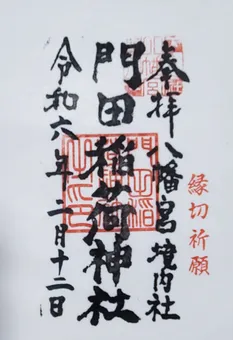 奉拝 八幡宮境内社
縁切祈願
門田稲荷神社
令和六年二月十二日